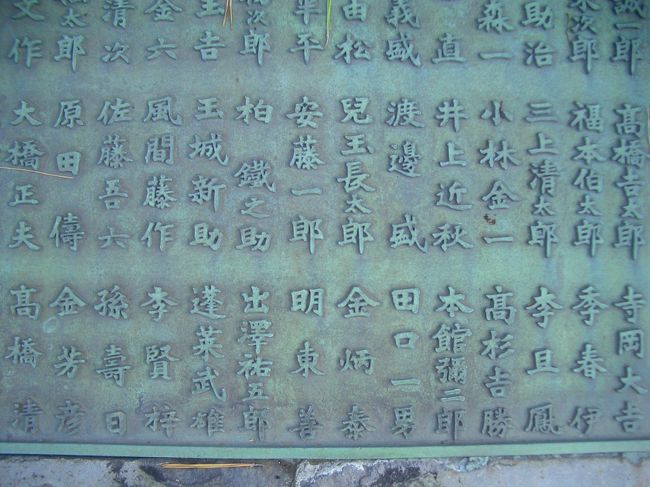 一郎 髙橋𠮷太郎 寺岡大𠮷
次郎 福本伯太郎 季春伊
助治 三上清太郎 李旦鳳
森一 小林金一 髙杉吉勝
直 井上近秋 本館彌二郎
義盛 渡邊盛 田口一男
由松 兒玉長太郎 金炳泰
半平 安藤一郎 明東善
次郎 柏鐵之助 出澤祐五郎
吉 玉城新助 蓬莱武雄
金六 風間藤作 李賢梓
清次 佐藤吾六 孫壽日
太郎 原田儔 金芳彦
文作 大橋正夫 髙橋清